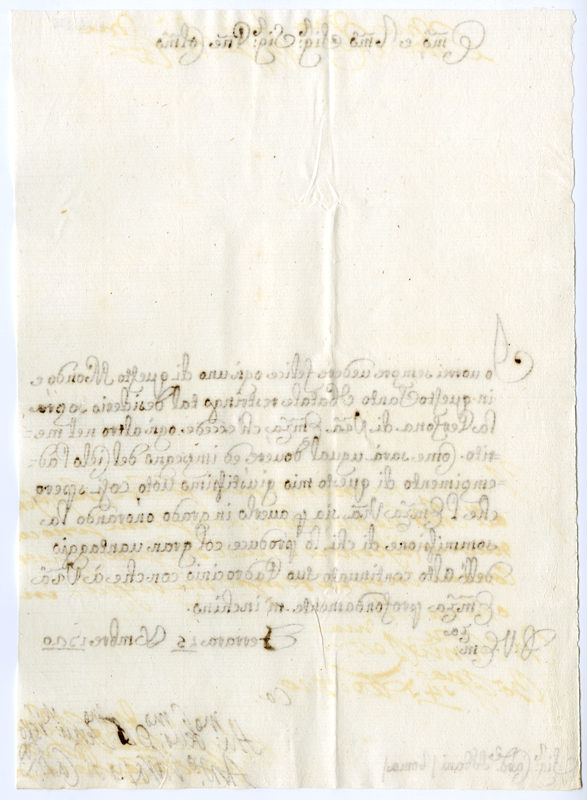 Emō e Rmō Sig:r Sig:r Pnē Colmō
Io vorrei sempre vedere felice ogni uno di questo Mondo e
in questo Santo Natale restringo tal desiderio so pra
la Persona di Vrā Emza, che eccede ogni altro nel me=
=rito. Come sarà ugual dovere ed impegno del Cielo l'ad=
=empimento di questo mio giustissimo Voto così spero
che l'Emza Vrā sia per averlo in grado onorando la
sommissione di chi lo produce col gran vantaggio
dell'alto continuato suo Padrocinio con che à Vrā
Emza profondamente m'inchino.
Di V. Emza
Ferrara 15 Xmbre 1710
Sig:r Card:e Albani / Roma